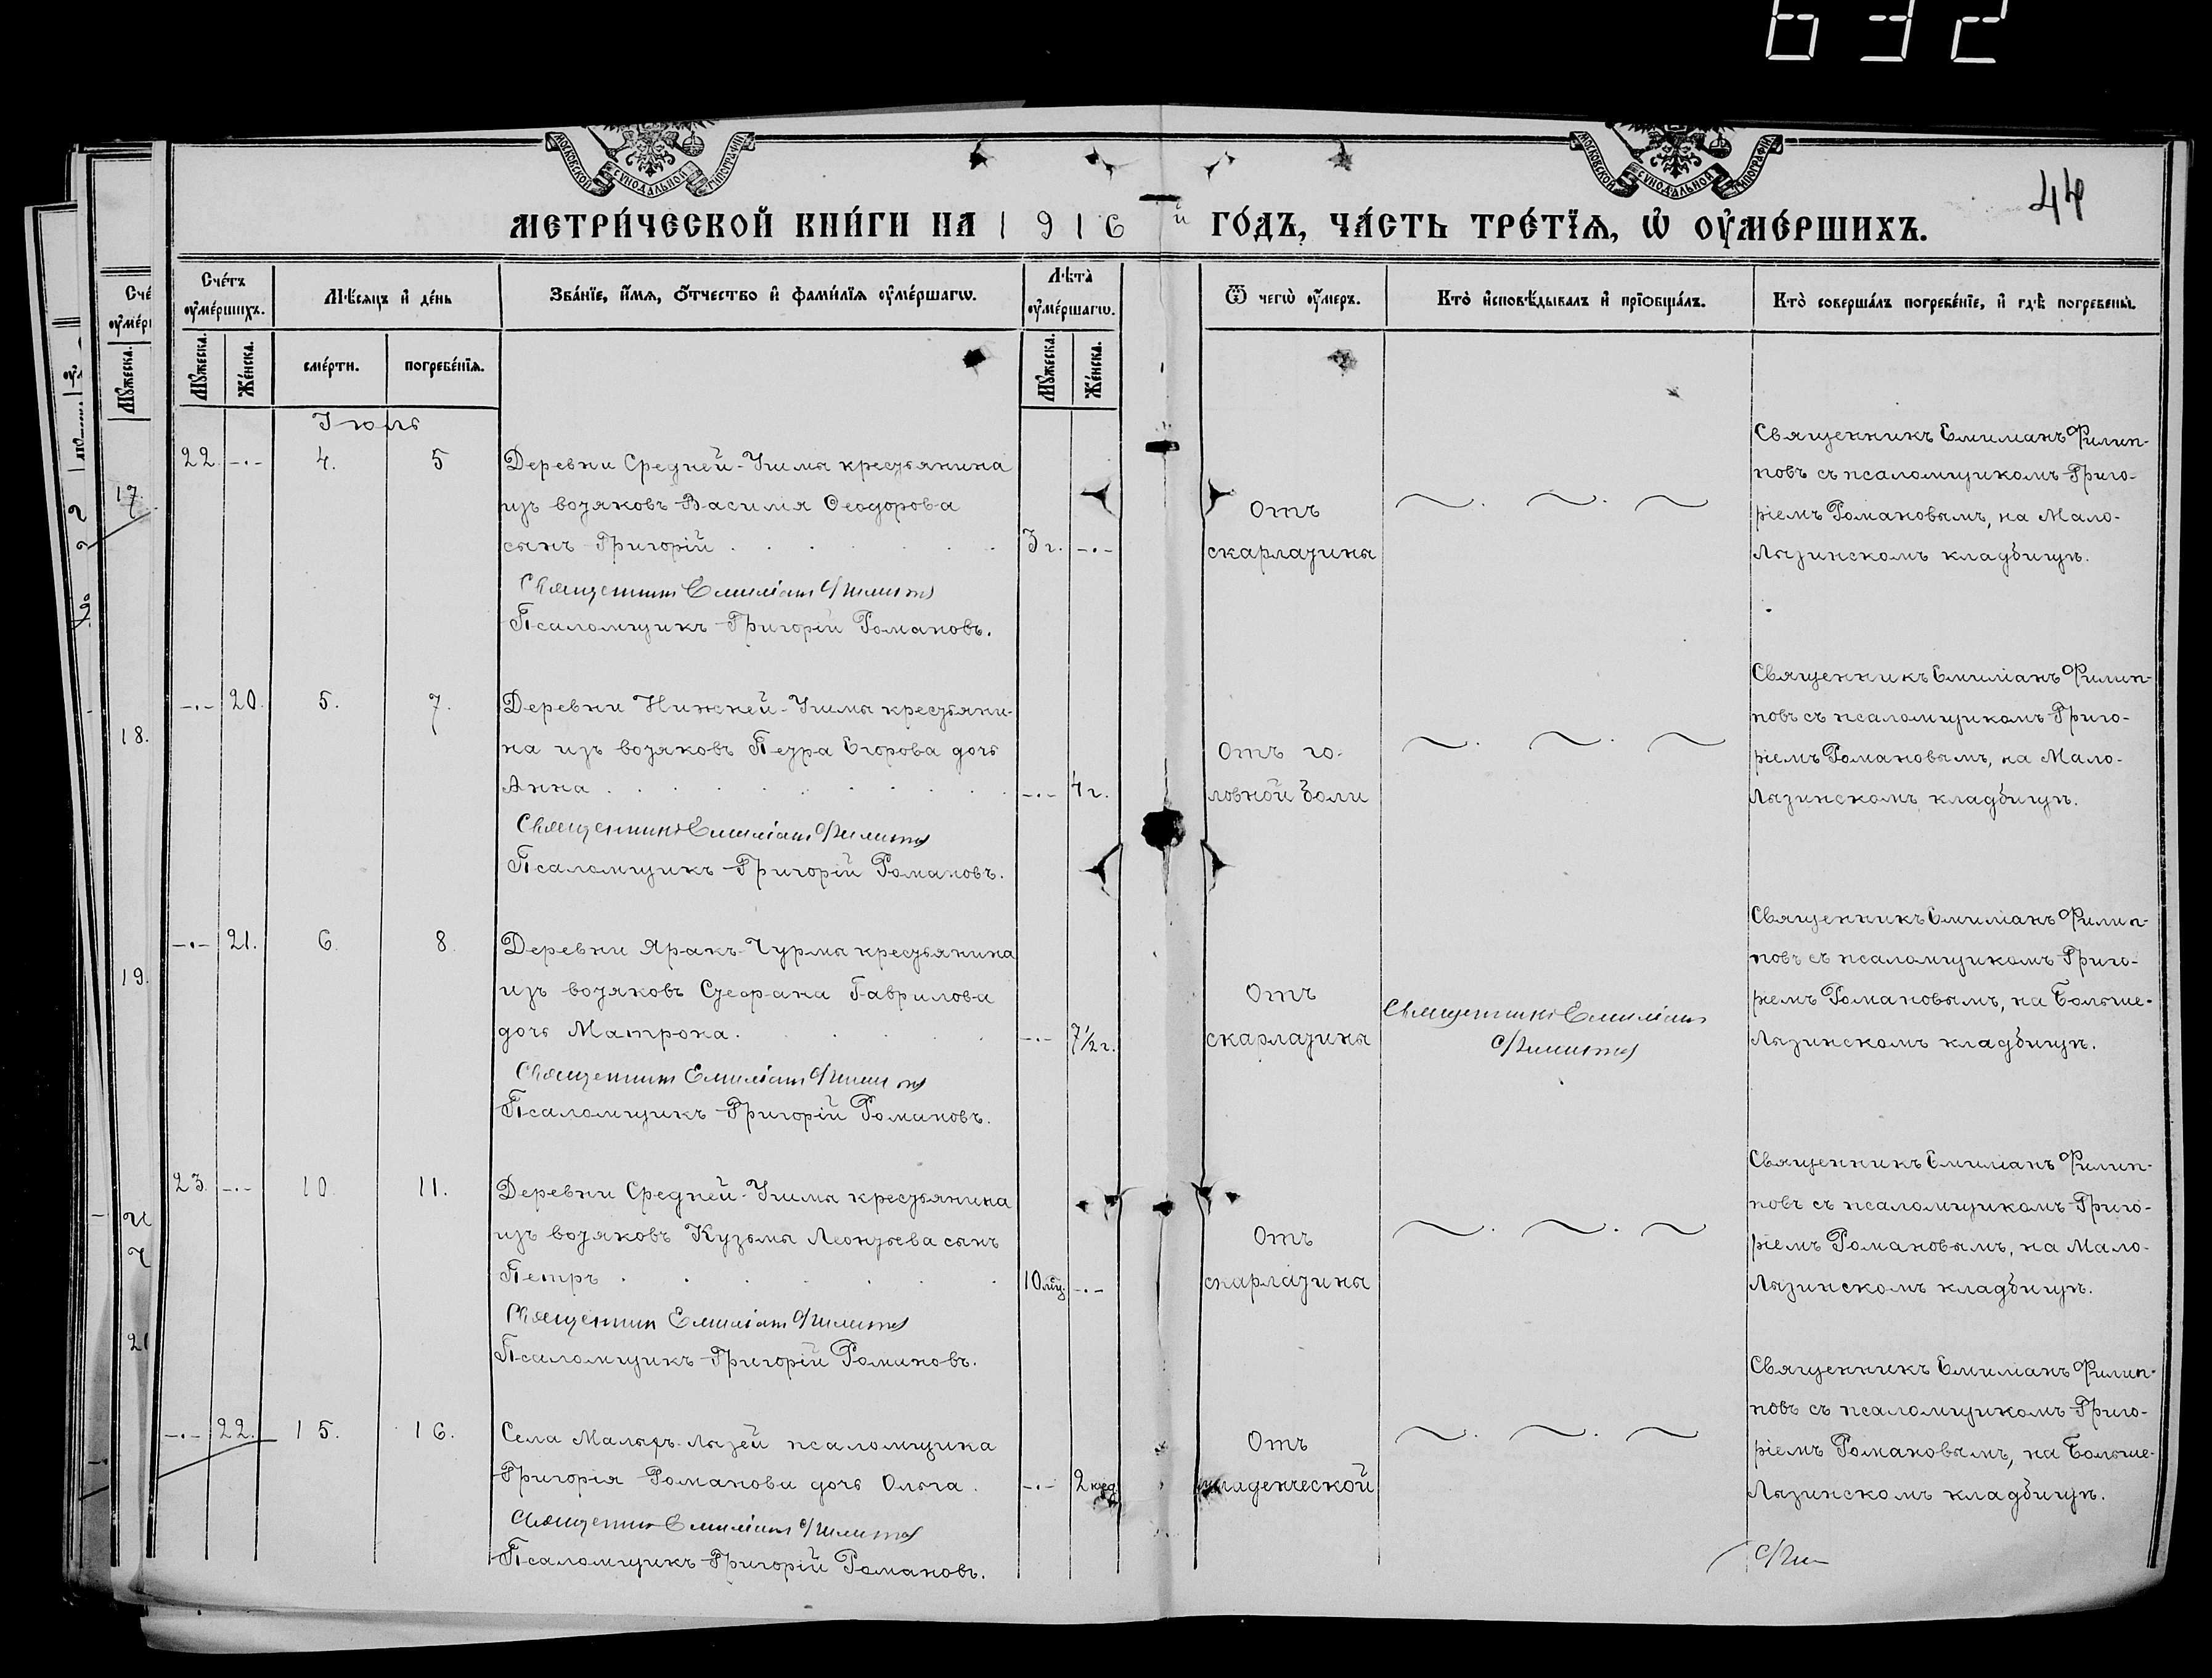 632
МОСКОВСКОЙ СѴНОДАЛЬНОЙ ТИПОГРАФІИ
МОСКОВСКОЙ СѴНОДАЛЬНОЙ ТИПОГРАФІИ
44
МЕТРИ́ЧЕСКОЙ КНИ́ГИ НА 1916й ГО́ДЪ, ЧА́СТЬ ТРЕ́ТЇѦ, Ѡ҆ ОУ҆МЕ́РШИХЪ.
Сче́тъ оу҆ме́ршихъ.
Мꙋ́жеска.
Же́нска.
Мѣ́сѧцъ и҆ де́нь
сме́рти.
погребе́нїѧ.
Зва́нїе, и҆́мѧ, ѻ҆́тчество и҆ фами́лїѧ оу҆ме́ршагѡ.
Лѣ́та оу҆ме́ршагѡ.
Мꙋ́жеска.
Же́нска.
Ѿ чегѡ̀ оу҆́меръ.
Кто̀ и҆сповѣ́дывалъ и҆ прїѻбща́лъ.
Кто̀ соверша́лъ погребе́нїе, и҆ гдѣ̀ погребены̀.
Іюль
22. -.- 4. 5
Деревни Средней-Ушмы крестьянина
изъ вотяковъ Василія Ѳеодорова
сынъ Григорій . . . . . . . 3 г. -.-
Священникъ Емиліанъ Филипповъ
Псаломщикъ Григорій Романовъ.
Отъ
скарлатины
Священникъ Емиліанъ Филип-
повъ съ псаломщикомъ Григо-
ріемъ Романовымъ, на Мало-
Лызинскомъ кладбищѣ.
-.- 20. 5. 7.
Деревни Нижней-Ушмы крестьяни-
на изъ вотяковъ Петра Егорова дочь
Анна . . . . . . . . . -.- 4 г.
Священникъ Емиліанъ Филипповъ
Псаломщикъ Григорій Романовъ.
Отъ го-
ловной боли
Священникъ Емиліанъ Филип-
повъ съ псаломщикомъ Григо-
ріемъ Романовымъ, на Мало-
Лызинскомъ кладбищѣ.
-.- 21. 6. 8.
Деревни Яракъ-Чурмы крестьянина
изъ вотяковъ Стефана Гаврилова
дочь Матрона. . . . . . -.- 7 1/2 г.
Священникъ Емиліанъ Филипповъ
Псаломщикъ Григорій Романовъ.
Отъ
скарлатины
Священникъ Емиліанъ
Филипповъ
Священникъ Емиліанъ Филип-
повъ съ псаломщикомъ Григо-
ріемъ Романовымъ, на Больше-
Лызинскомъ кладбищѣ.
23. -.- 10. 11.
Деревни Средней-Ушмы крестьянина
изъ вотяковъ Кузьмы Леонтьева сынъ
Петръ . . . . . . . 10 мц. -.-
Священникъ Емиліанъ Филипповъ
Псаломщикъ Григорій Романовъ.
Отъ
скарлатины
Священникъ Емиліанъ Филип-
повъ съ псаломщикомъ Григо-
ріемъ Романовымъ, на Мало-
Лызинскомъ кладбищѣ.
-.- 22. 15. 16.
Села Малыхъ-Лызей псаломщика
Григорія Романова дочь Ольга . -.- 2 нед.
Священникъ Емиліанъ Филипповъ
Псаломщикъ Григорій Романовъ.
Отъ
младенческой
Священникъ Емиліанъ Филип-
повъ съ псаломщикомъ Григо-
ріемъ Романовымъ, на Больше-
Лызинскомъ кладбищѣ.
17.
18.
19.